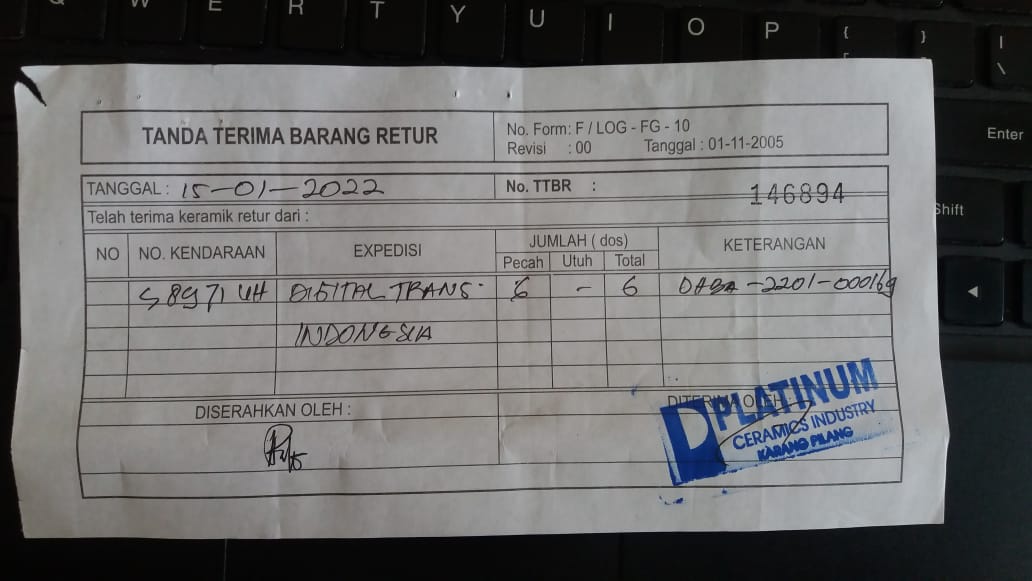 Q W E R T Y U I O P { [ } | \
Enter
Shift
TANDA TERIMA BARANG RETUR
No. Form: F / LOG - FG - 10
Revisi : 00 Tanggal : 01-11-2005
TANGGAL : 15-01-2022 No. TTBR : 146894
Telah terima keramik retur dari :
NO NO. KENDARAAN EXPEDISI JUMLAH ( dos) KETERANGAN
Pecah Utuh Total
S 8971 UH DIGITAL TRANS- 6 - 6
INDONESIA
DISERAHKAN OLEH : DITERIMA OLEH :
PLATINUM
CERAMICS INDUSTRY
KARANG PILANG